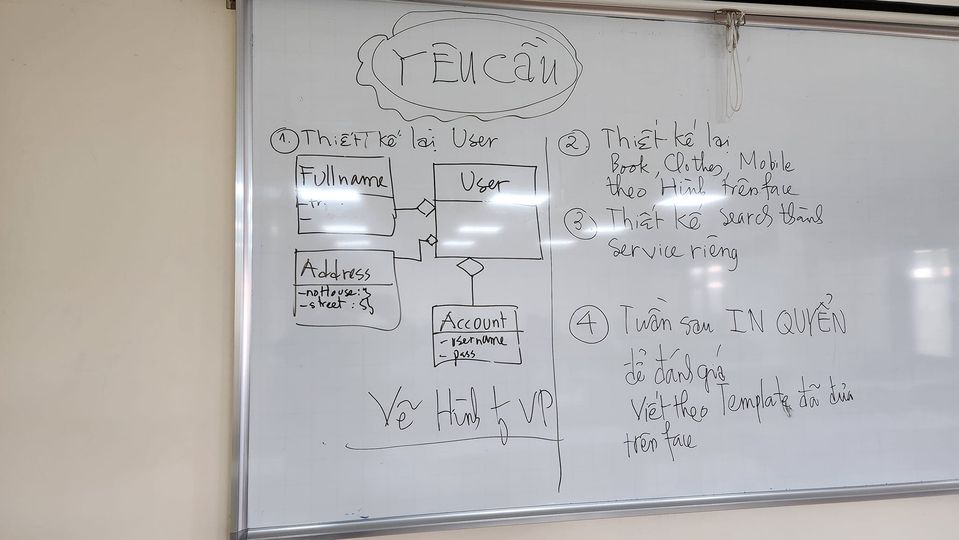 YÊU CẦU
1. Thiết kế lại User
Fullname
User
Address
-noHouse:
-street:
Account
- username
- pass
Vẽ Hình VP
2. Thiết kế lại
Book, Clothes, Mobile
theo Hình trên face
3 Thiết kế search thành
service riêng
4 Tuần sau IN QUYỂN
để đánh giá
Viết theo Template đã đưa
trên face